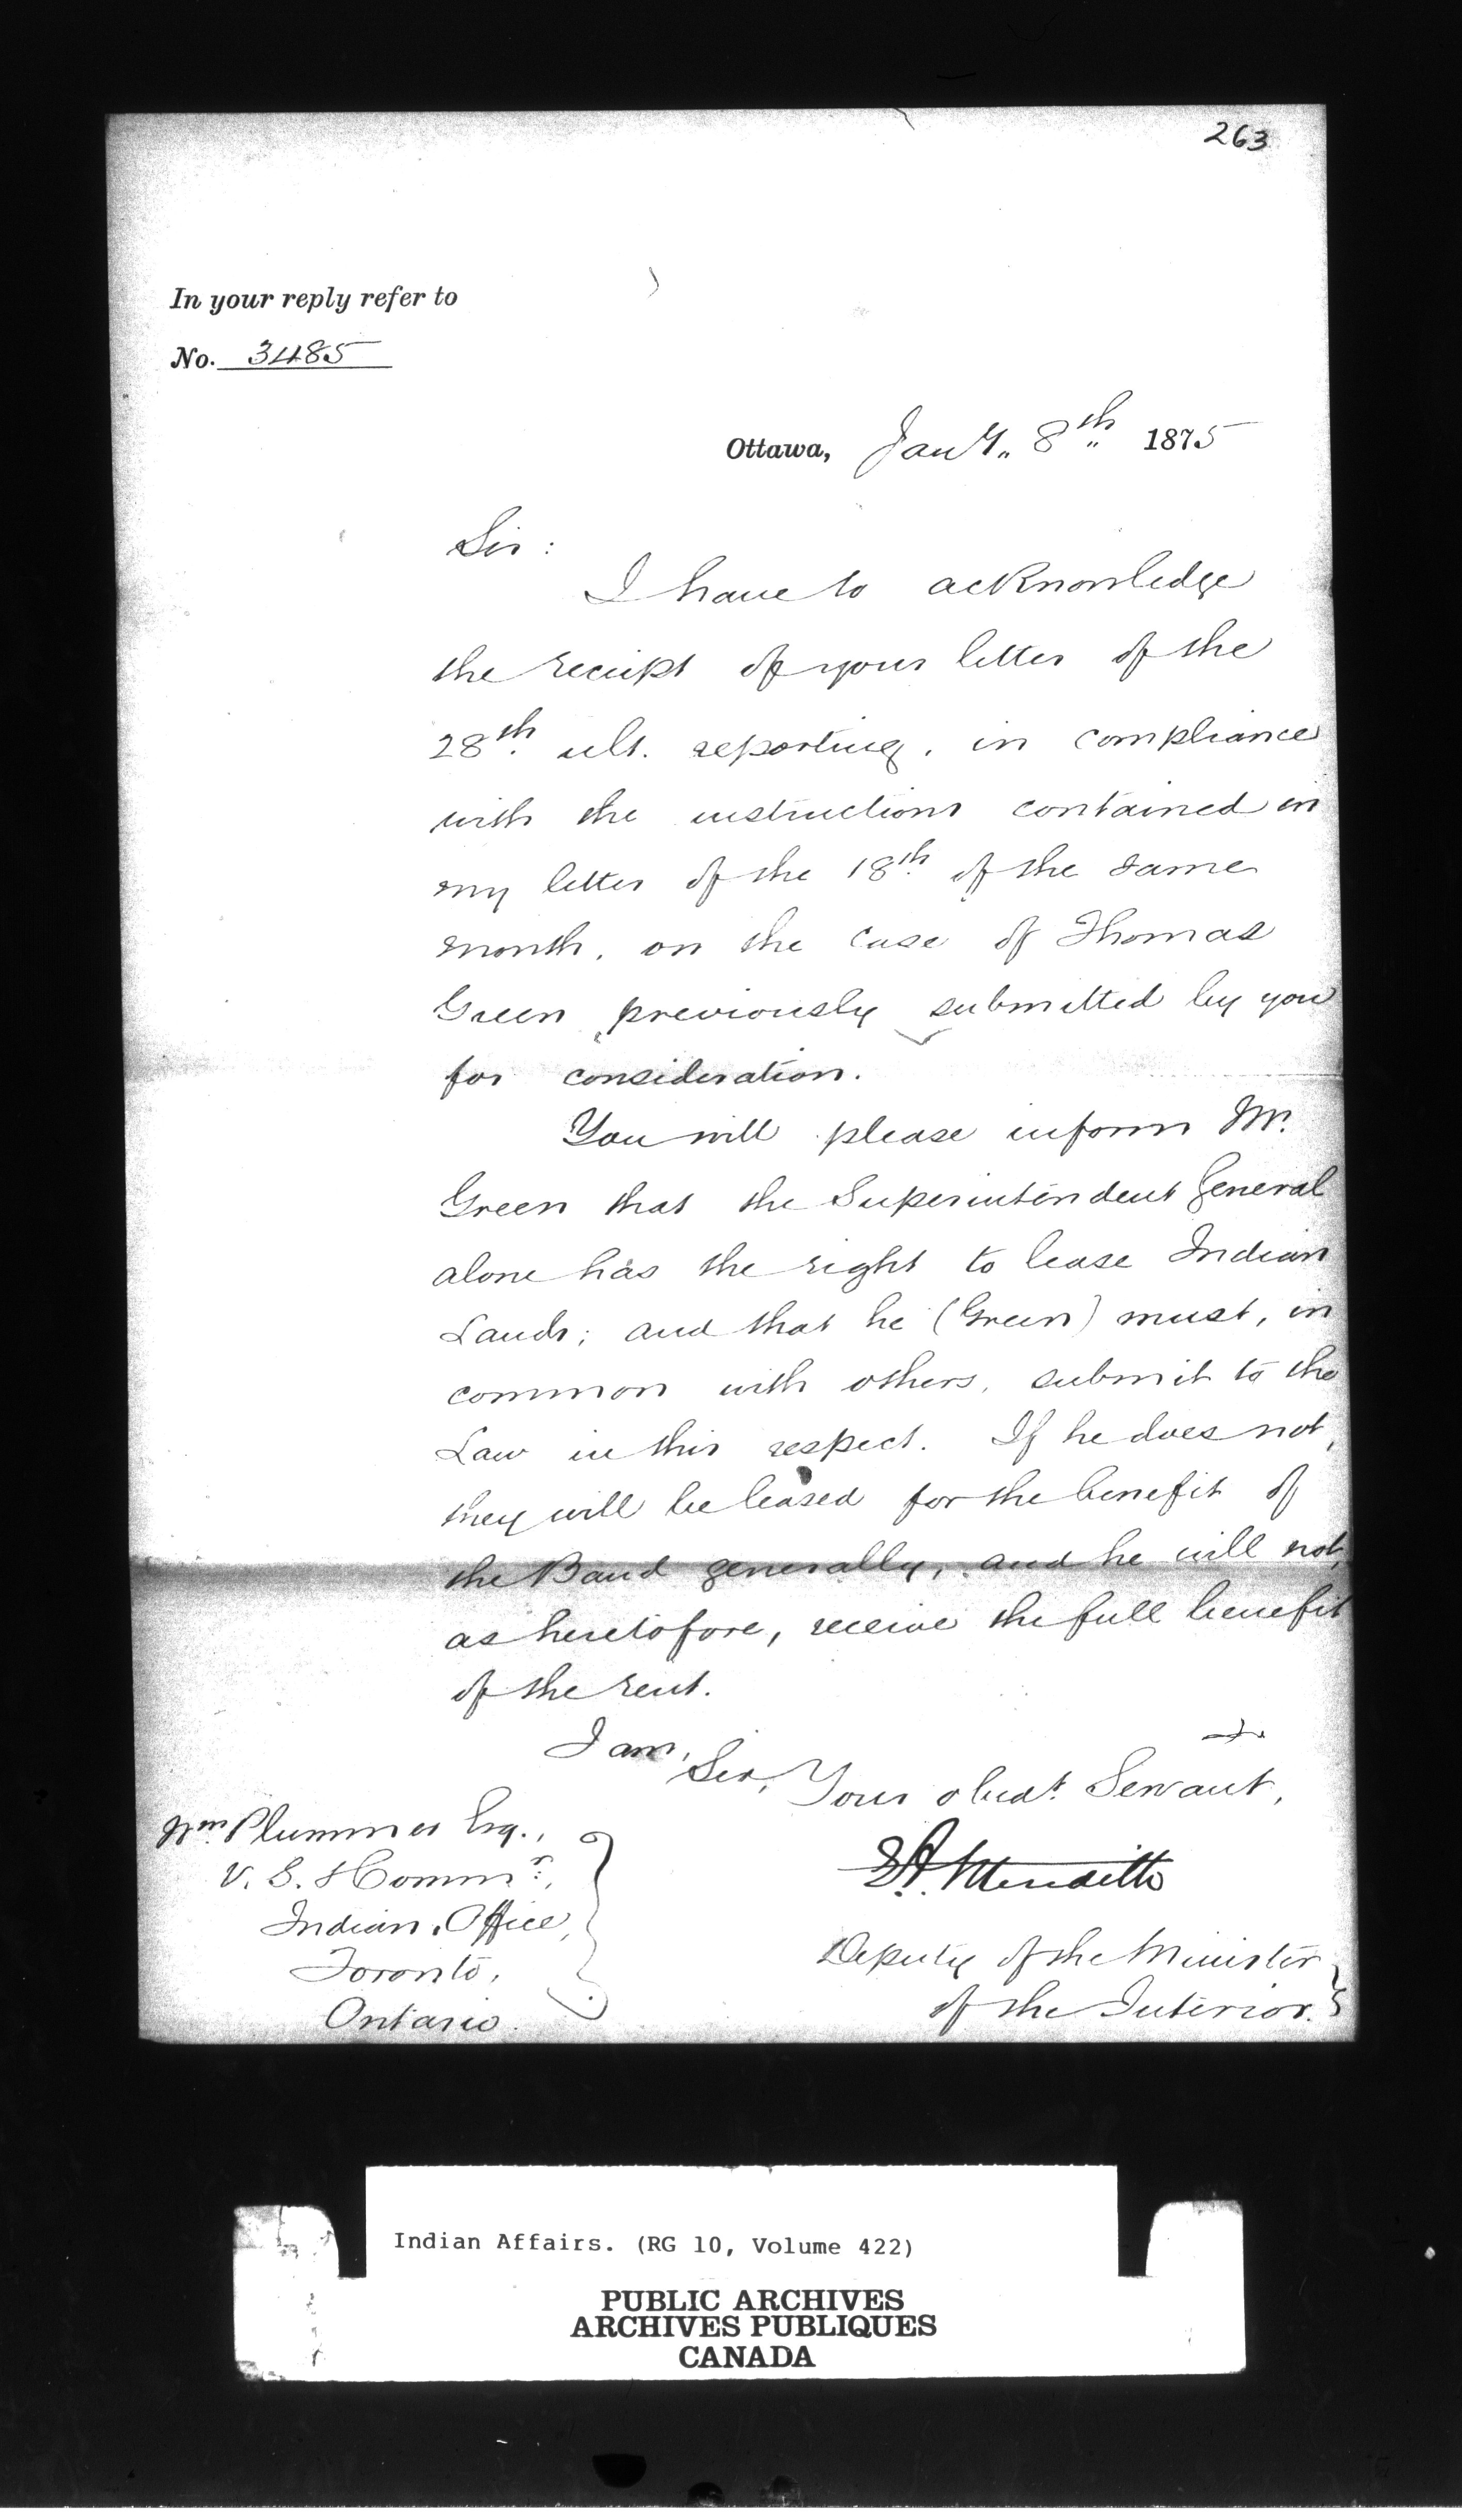 263
In your reply refer to
No. 3485
Ottawa, Jany. 8th 1875
Sir:
I have to acknowledge
the receipt of your letter of the
28th ult. reporting, in compliance
with the instructions contained in
my letter of the 18th of the same
month, on the case of Thomas
Green previously submitted by you
for consideration.
You will please inform Mr.
Green that the Superintendent General
alone has the right to lease Indian
Lands; and that he (Green) must, in
common with others, submit to the
Law in this respect. If he does not,
they will be leased for the benefit of
the Band generally, and he will not,
as heretofore, receive the full benefit
of the rent.
I am, Sir, Your obedt. Servant,
E. A. Meredith
Deputy of the Minister
of the Interior.
Wm Plummer Esq.,
V. S. & Commr.,
Indian Office,
Toronto,
Ontario.
Indian Affairs. (RG 10, Volume 422)
PUBLIC ARCHIVES
ARCHIVES PUBLIQUES
CANADA